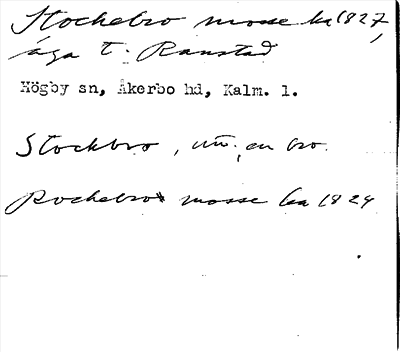 Stockebro mosse ka 1827,
äga t. Ranstad
Högby sn, Åkerbo hd, Kalm. l.
Stockbro, un.; en bro.
Rockebro mosse ka 1824